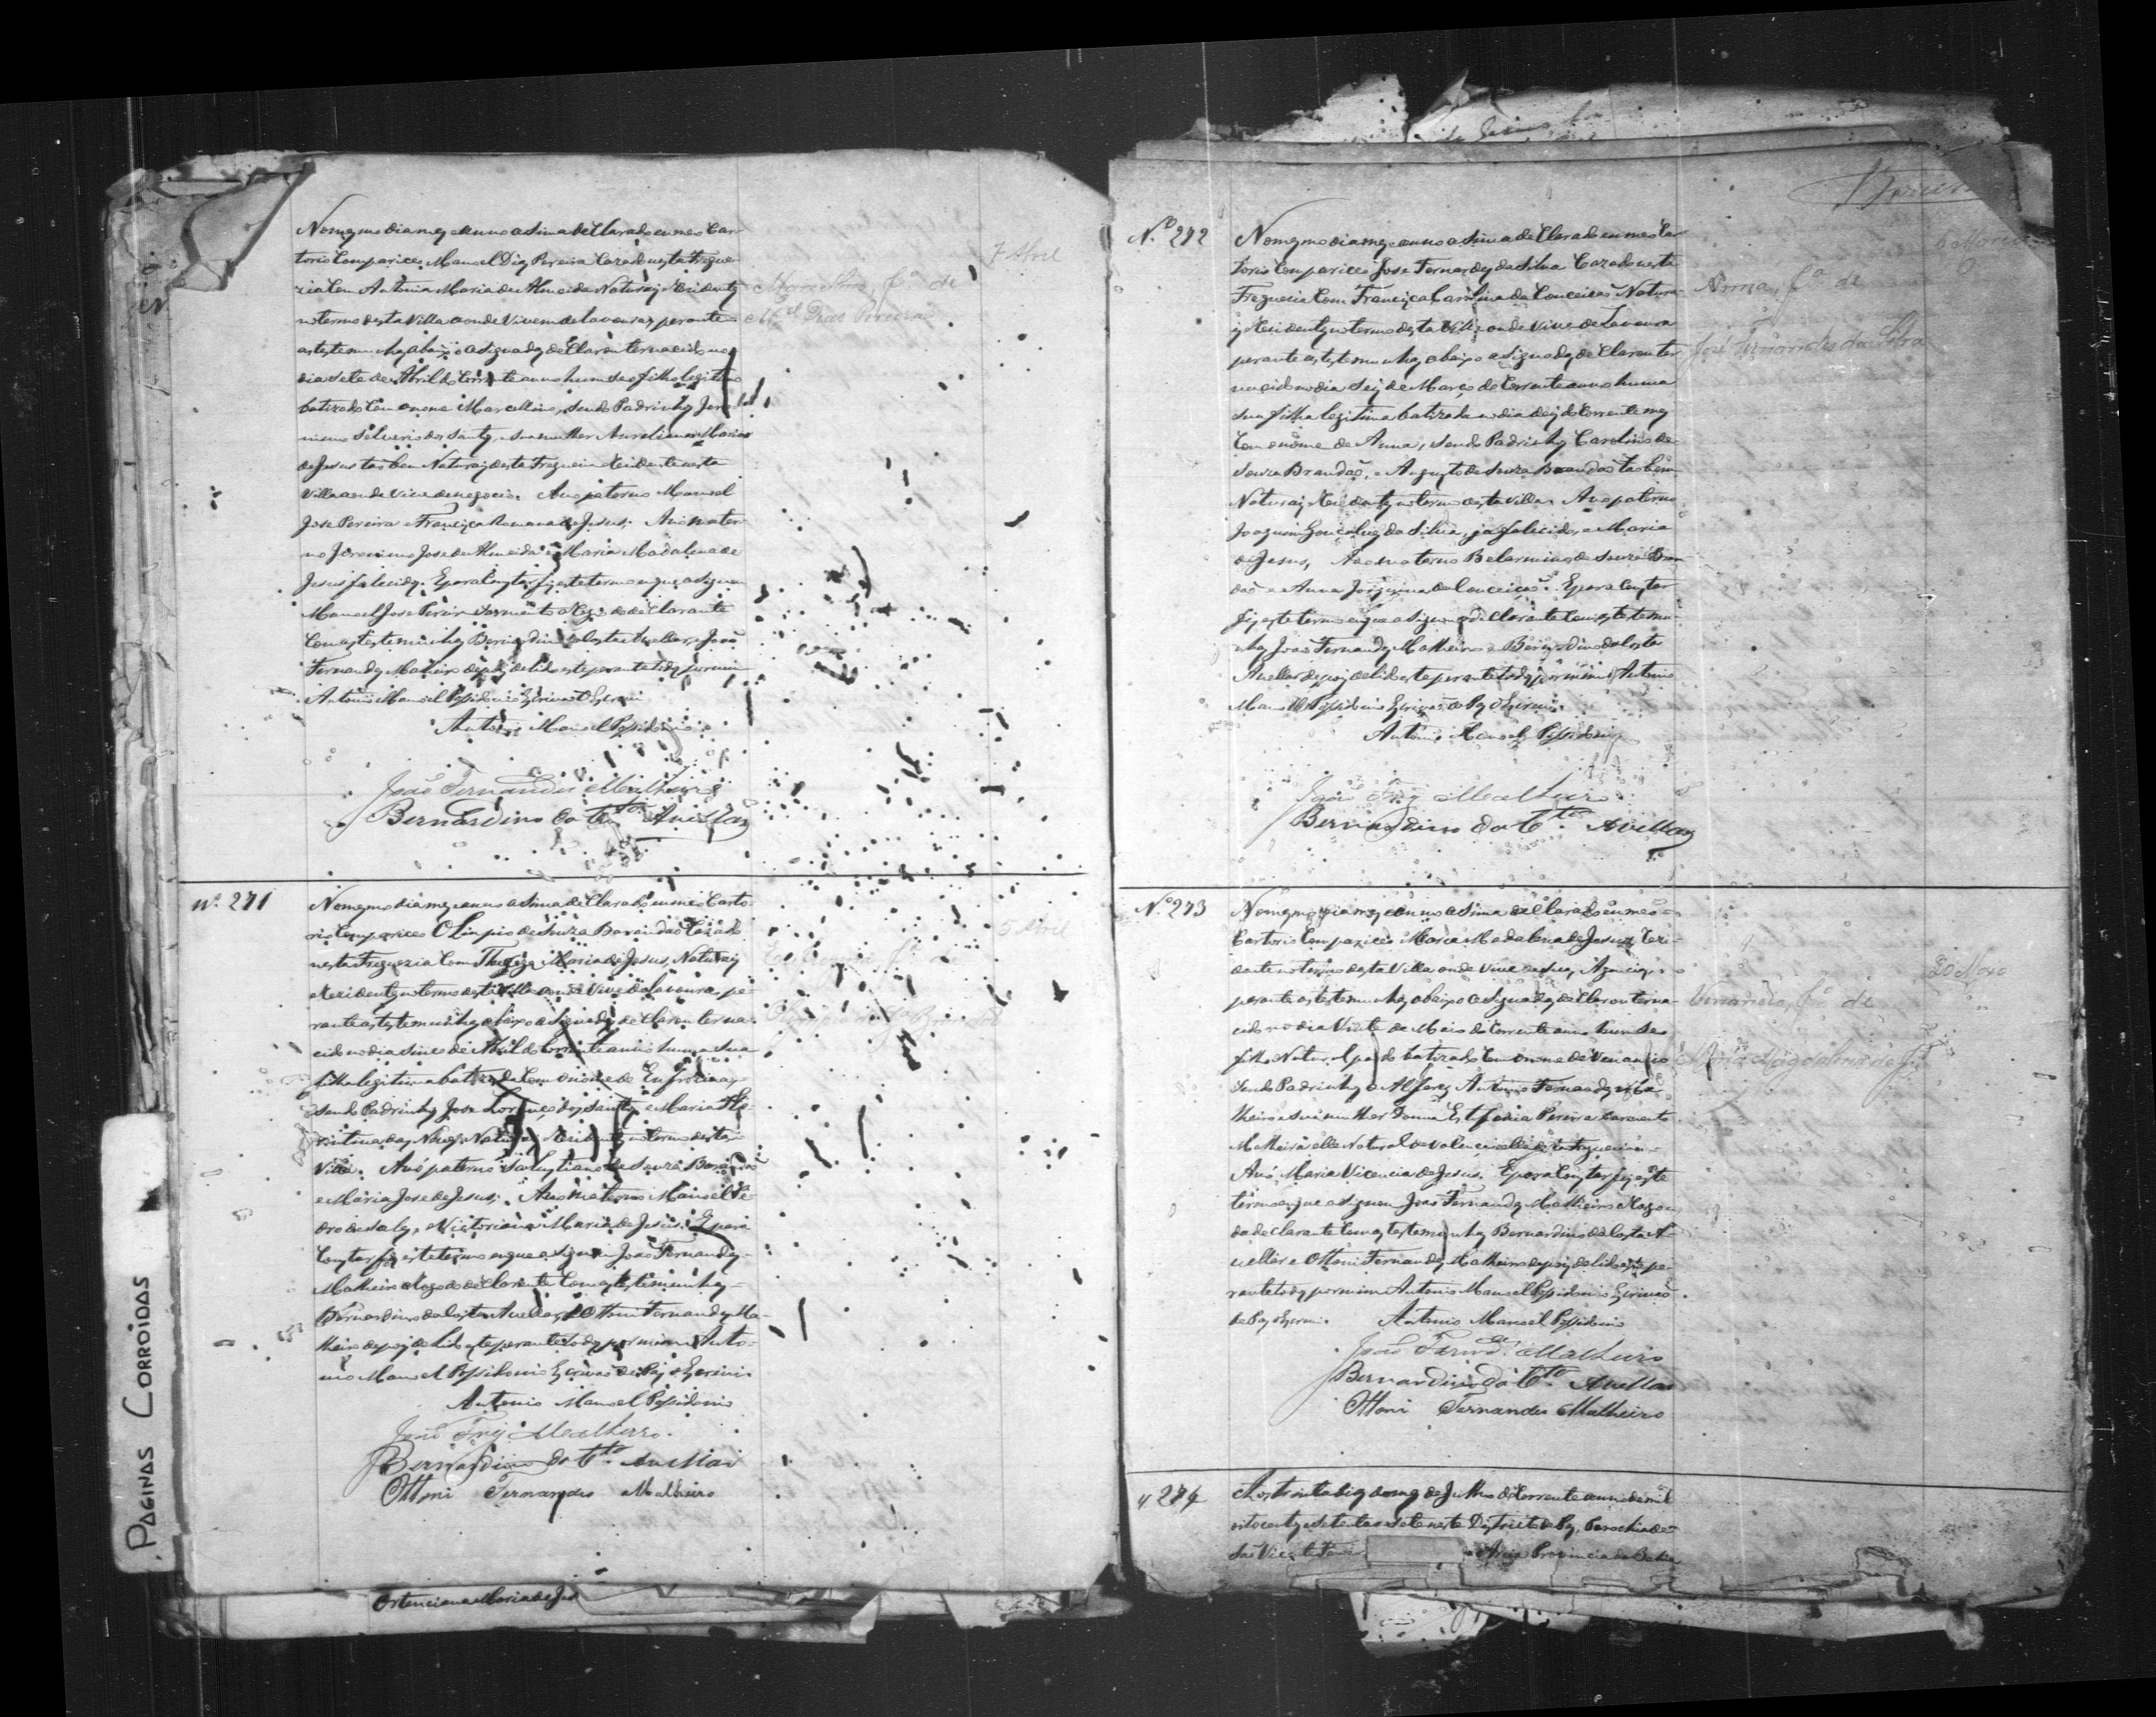 No mesmo dia mez e anno asima declarado em meo Car-
torio Compareceo Manoel Dias Pereira Cazado nesta Fregue-
zia Com Antonia Maria de Almeida Naturaiz Rezidentes
no termo desta Villa aonde Vivem de lavouras, perante
as testemunhas abaixo asignadas declarou ter nacido no
dia sete de Abril do Corrente anno hum seo filho legitimo
batizado Com o nome Marcellino, sendo Padrinhos Jero
nimo Silverio dos Santos, e sua mulher Aureliana Maria
de Jesus tão bem Naturaiz desta Freguezia Rezidente nesta
Villa aonde Vive de negocio. Avó paterno Manoel
Jose Pereira e Francisca Romana de Jesus. Avó mater-
no Jeronimo Jose de Almeida e Maria Madalena de
Jesus falecidos. E para Constar fiz este termo em que asignou
Manoel Jose Pereira Sarmento a Rogo do declarante
Com as testemunhas Bernardino da Costa Avellar, e João
Fernandes Malheiro depois de lido este perante todos por mim
Antonio Manoel Possidonio Escrivão o Escrevi
Antonio Manoel Possidonio
João Fernandes Malheiro
Bernardino da Cta Avellar
7 Abril
Marcellino, fo de
Mel Dias Pereira
No 271
No mesmo dia mez e anno asima declarado em meo Carto-
rio Compareceo Olimpio de Souza Barandão Cazado
nesta Freguezia Com Thereza Maria de Jesus, Naturaiz
e Rezidentes no termo desta Villa aonde Vive de lavoura, pe-
rante as testemunhas abaixo asignadas declarou ter na-
cido no dia sinco de Abril do Corrente anno huma sua
filha legitima batizada Com o nome de Eufrozina,
sendo Padrinhos Jose Lorenço dos Santos, e Maria Flo-
rentina das Neves Naturaiz Rezidentes no termo desta
Villa. Avó paterno Salustiano de Souza Barandão
e Maria Jose de Jesus. Avó Materno Manoel Pe-
dro de Sales, e Victoriana Maria de Jesus. E para
Constar fiz este termo em que asignou João Fernandes
Malheiro a Rogo do declarante Com as testemunhas
Bernardino da Costa Avellar, e Ottoni Fernandes Ma-
lheiro depois de lido este perante todos por mim Anto-
nio Manoel Possidonio Escrivão de Paz o Escrevi
Antonio Manoel Possidonio
João Frz Malheiro.
Bernardino da Cta Avellar
Ottoni Fernandes Malheiro
5 Abril
Ortenciana Maria de Jes
No 272
No mesmo dia mez e anno asima declarado em meo Car
torio Compareceo Jose Fernandes da Silva Cazado nesta
Freguezia Com Francisca Carolina da Conceicão Natura
is Rezidentes no termo desta Villa onde Vive de Lavoura
perante as testemunhas abaixo asignadas declarou ter
nacido no dia Seis de Março do Corrente anno huma
sua filha legitima batizada no dia deis do Corrente mez
Com o nome de Anna, sendo Padrinhos Carolino de
Souza Brandaõ, e Augusto de Souza Brandão tão bem
Naturaiz Rezidentes no termo desta Villa. Avó paterno
Joaquim Gonçalves da Silva, ja falecido, e Maria
de Jesus, Avó materno Belarmino de Souza Bran
daõ e Anna Joaquina da Conceição. E para Constar
fiz este termo em que asignou o declarante Com as testemu-
nhas João Fernandes Malheiro e Bernardino da Costa
Avellar depois de lido este perante todos por mim Antonio
Manoel Possidonio Escrivão de Paz o Escrevi.
Antonio Manoel Possidonio
João Frz Malheiro.
Bernardino da Cta Avellar
6 Março
Anna, fa de
José Fernandes da Silva
No 273
No mesmo dia mez e anno asima declarado em meo
Cartorio Compareceo Maria Madalena de Jesus, Rezi-
dente no termo desta Villa onde Vive de suas Agencias
perante as testemunhas abaixo asignadas declarou ter na-
cido no dia Vinte de Maio do Corrente anno hum seo
filho Natural pardo batizado Com o nome de Venancio
sendo Padrinhos o Alferes Antonio Fernandes Ma-
lheiro e sua mulher Donna Estefania Pereira Sarmento
Malheiro elle Natural de Valença e ella desta Freguezia
Avó Maria Vicencia de Jesus. E para Constar fiz este
termo em que asignou João Fernandes Malheiro a Rogo
da declarante Com as testemunhas Bernardino da Costa A-
vellar e Ottoni Fernandes Malheiro depois de lido este pe-
rante todos por mim Antonio Manoel Possidonio Escrivão
de Paz o Escrevi. Antonio Manoel Possidonio
João Fernds Malheiro
Bernardino da Cta Avellar
Ottoni Fernandes Malheiro
20 Maio
Venancio, fo de
Maria Magdalena de J.
" 274
Aos trinta dias do mez de Julho do Corrente anno de mil
oito centos e setenta e sete neste Districto de Paz, Parochia de
São Vicente Ferrer Areia Provincia da Bahia
PAGINAS CORROIDAS